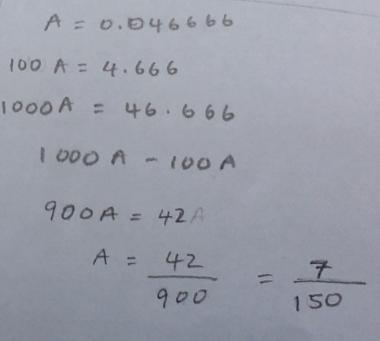 A = 0.046666
100 A = 4.666
1000A = 46.666
1000 A - 100A
900A = 42A
A = 42/900 = 7/150